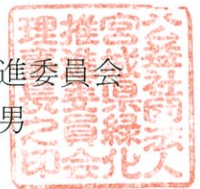 進委員会
男
公益社団法人
宮城県緑化
推進委員会
理事長之印